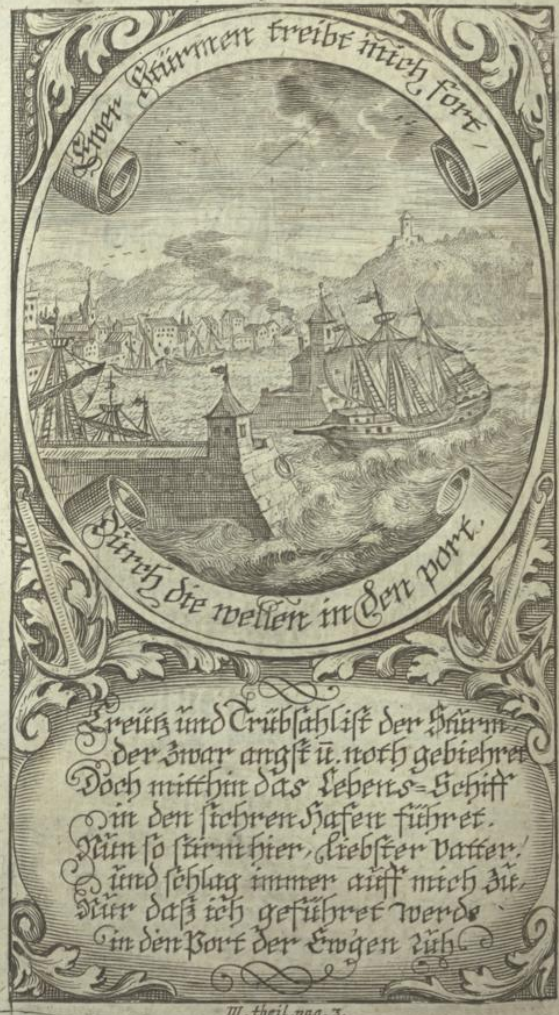 Ewer Stürmen treibt mich fort/
Durch die wellen in den port.
Creütz und Trübsahl ist der Stürm
der zwar angst ū. noth gebiehret
Doch mitthin das Lebens=Schiff
in den sichren Hafen führet.
Nün so stürm hier, liebster Vatter!
und schlag immer auff mich zü,
Nür daß ich geführet werde
in den Port der Ewgen Rüh.
III. theil pag. 3.